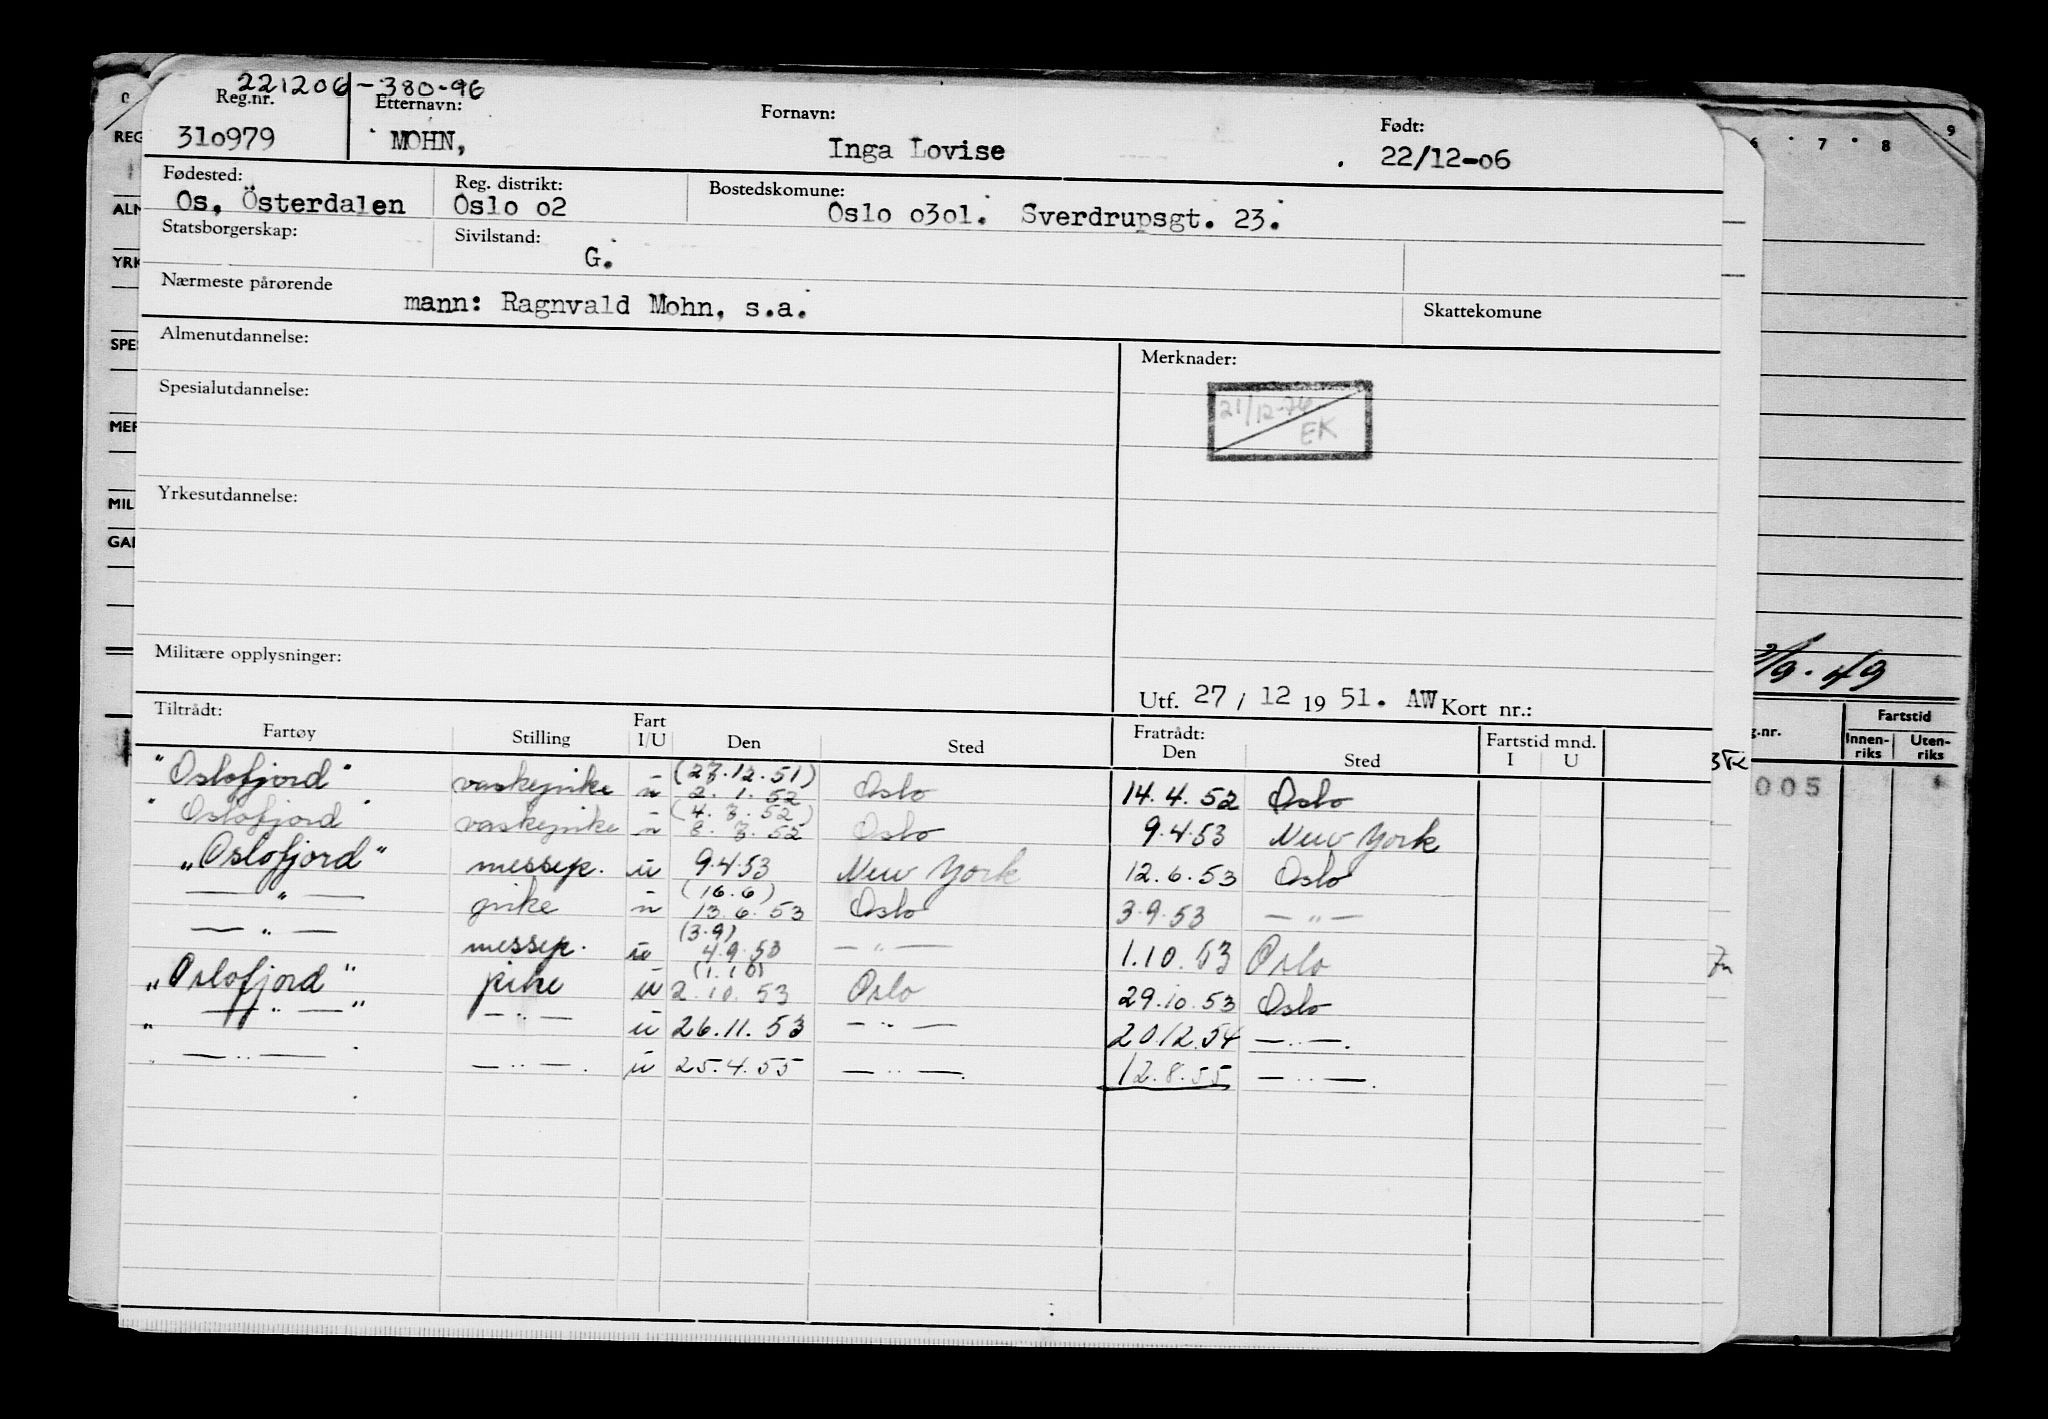 221206-380-96
Reg.nr. Etternavn: Fornavn: Født:
310979 MOHN, Inga Lovise 22/12-06
Fødested: Reg. distrikt: Bostedskomune:
Os, Österdalen Oslo 02 Oslo 0301. Sverdrupsgt. 23.
Statsborgerskap: Sivilstand:
G.
Nærmeste pårørende
mann: Ragnvald Mohn, s.a. Skattekomune
Almenutdannelse: Merknader:
Spesialutdannelse: 21/12-76 EK
Yrkesutdannelse:
Militære opplysninger:
Utf. 27 / 12 19 51. AW Kort nr.:
Tiltrådt: Fratrådt:
Fartøy Stilling Fart I/U Den Sted Den Sted Fartstid mnd. I U
"Oslofjord" vaskepike u (27.12.51) 2.1.52 Oslo 14.4.52 Oslo
"Oslofjord" vaskepike u (4.8.52) 8.8.52 Oslo 9.4.53 New York
"Oslofjord" messep. u 9.4.53 New York 12.6.53 Oslo
— " — pike u (16.6) 13.6.53 Oslo 3.9.53 — " —
— " — messep. u (3.9) 4.9.53 — " — 1.10.53 Oslo
"Oslofjord" pike u (1.10) 2.10.53 Oslo 29.10.53 Oslo
" — " — " — " — u 26.11.53 — " — 20.12.54 — " —.
" — " — " — " —. u 25.4.55 — " —. 12.8.55 — " —.
REG
ALM
YRK
SPE
MER
MIL
GAR
6 7 8 9
2/9-49
Fartstid
Innen-riks Uten-riks
005